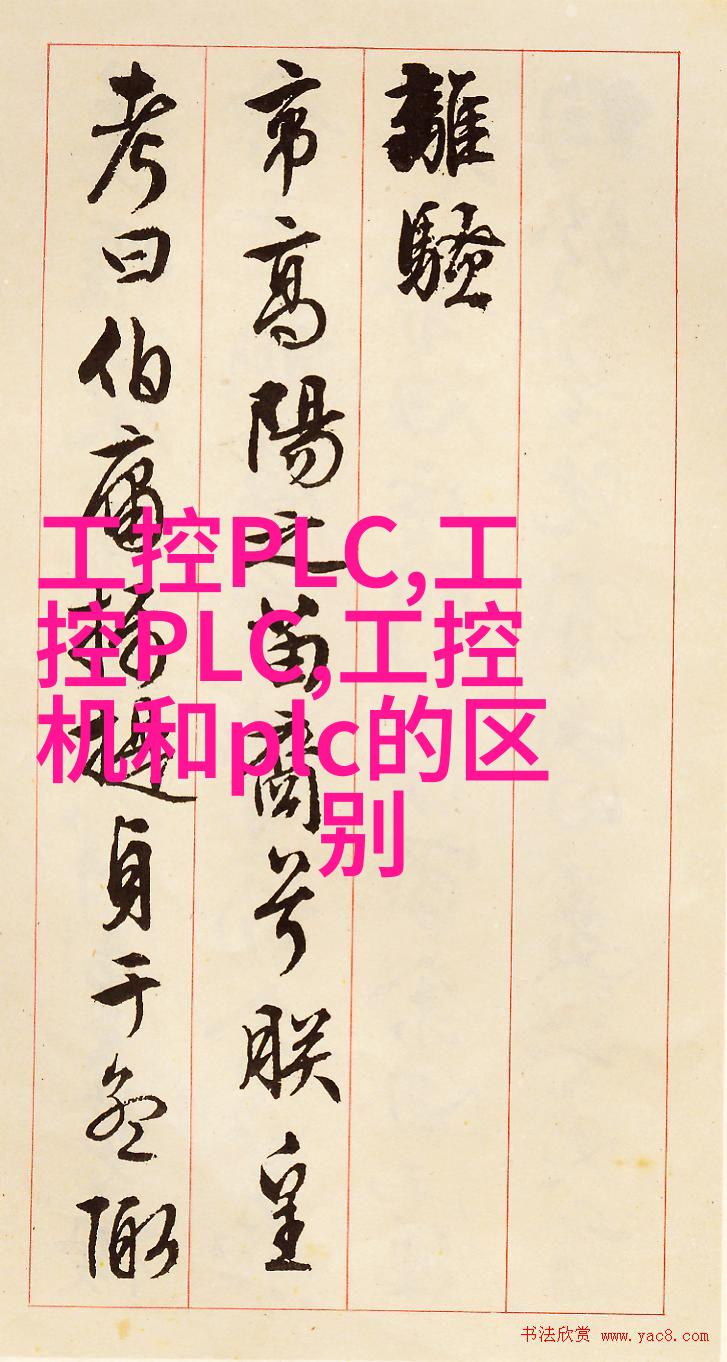 離騷
帝高陽之苗裔兮朕皇
考曰伯庸攝提貞于孟陬
工控PLC,工
控PLC,工控
机和plc的区
别
书法欣赏 www.yac8.com